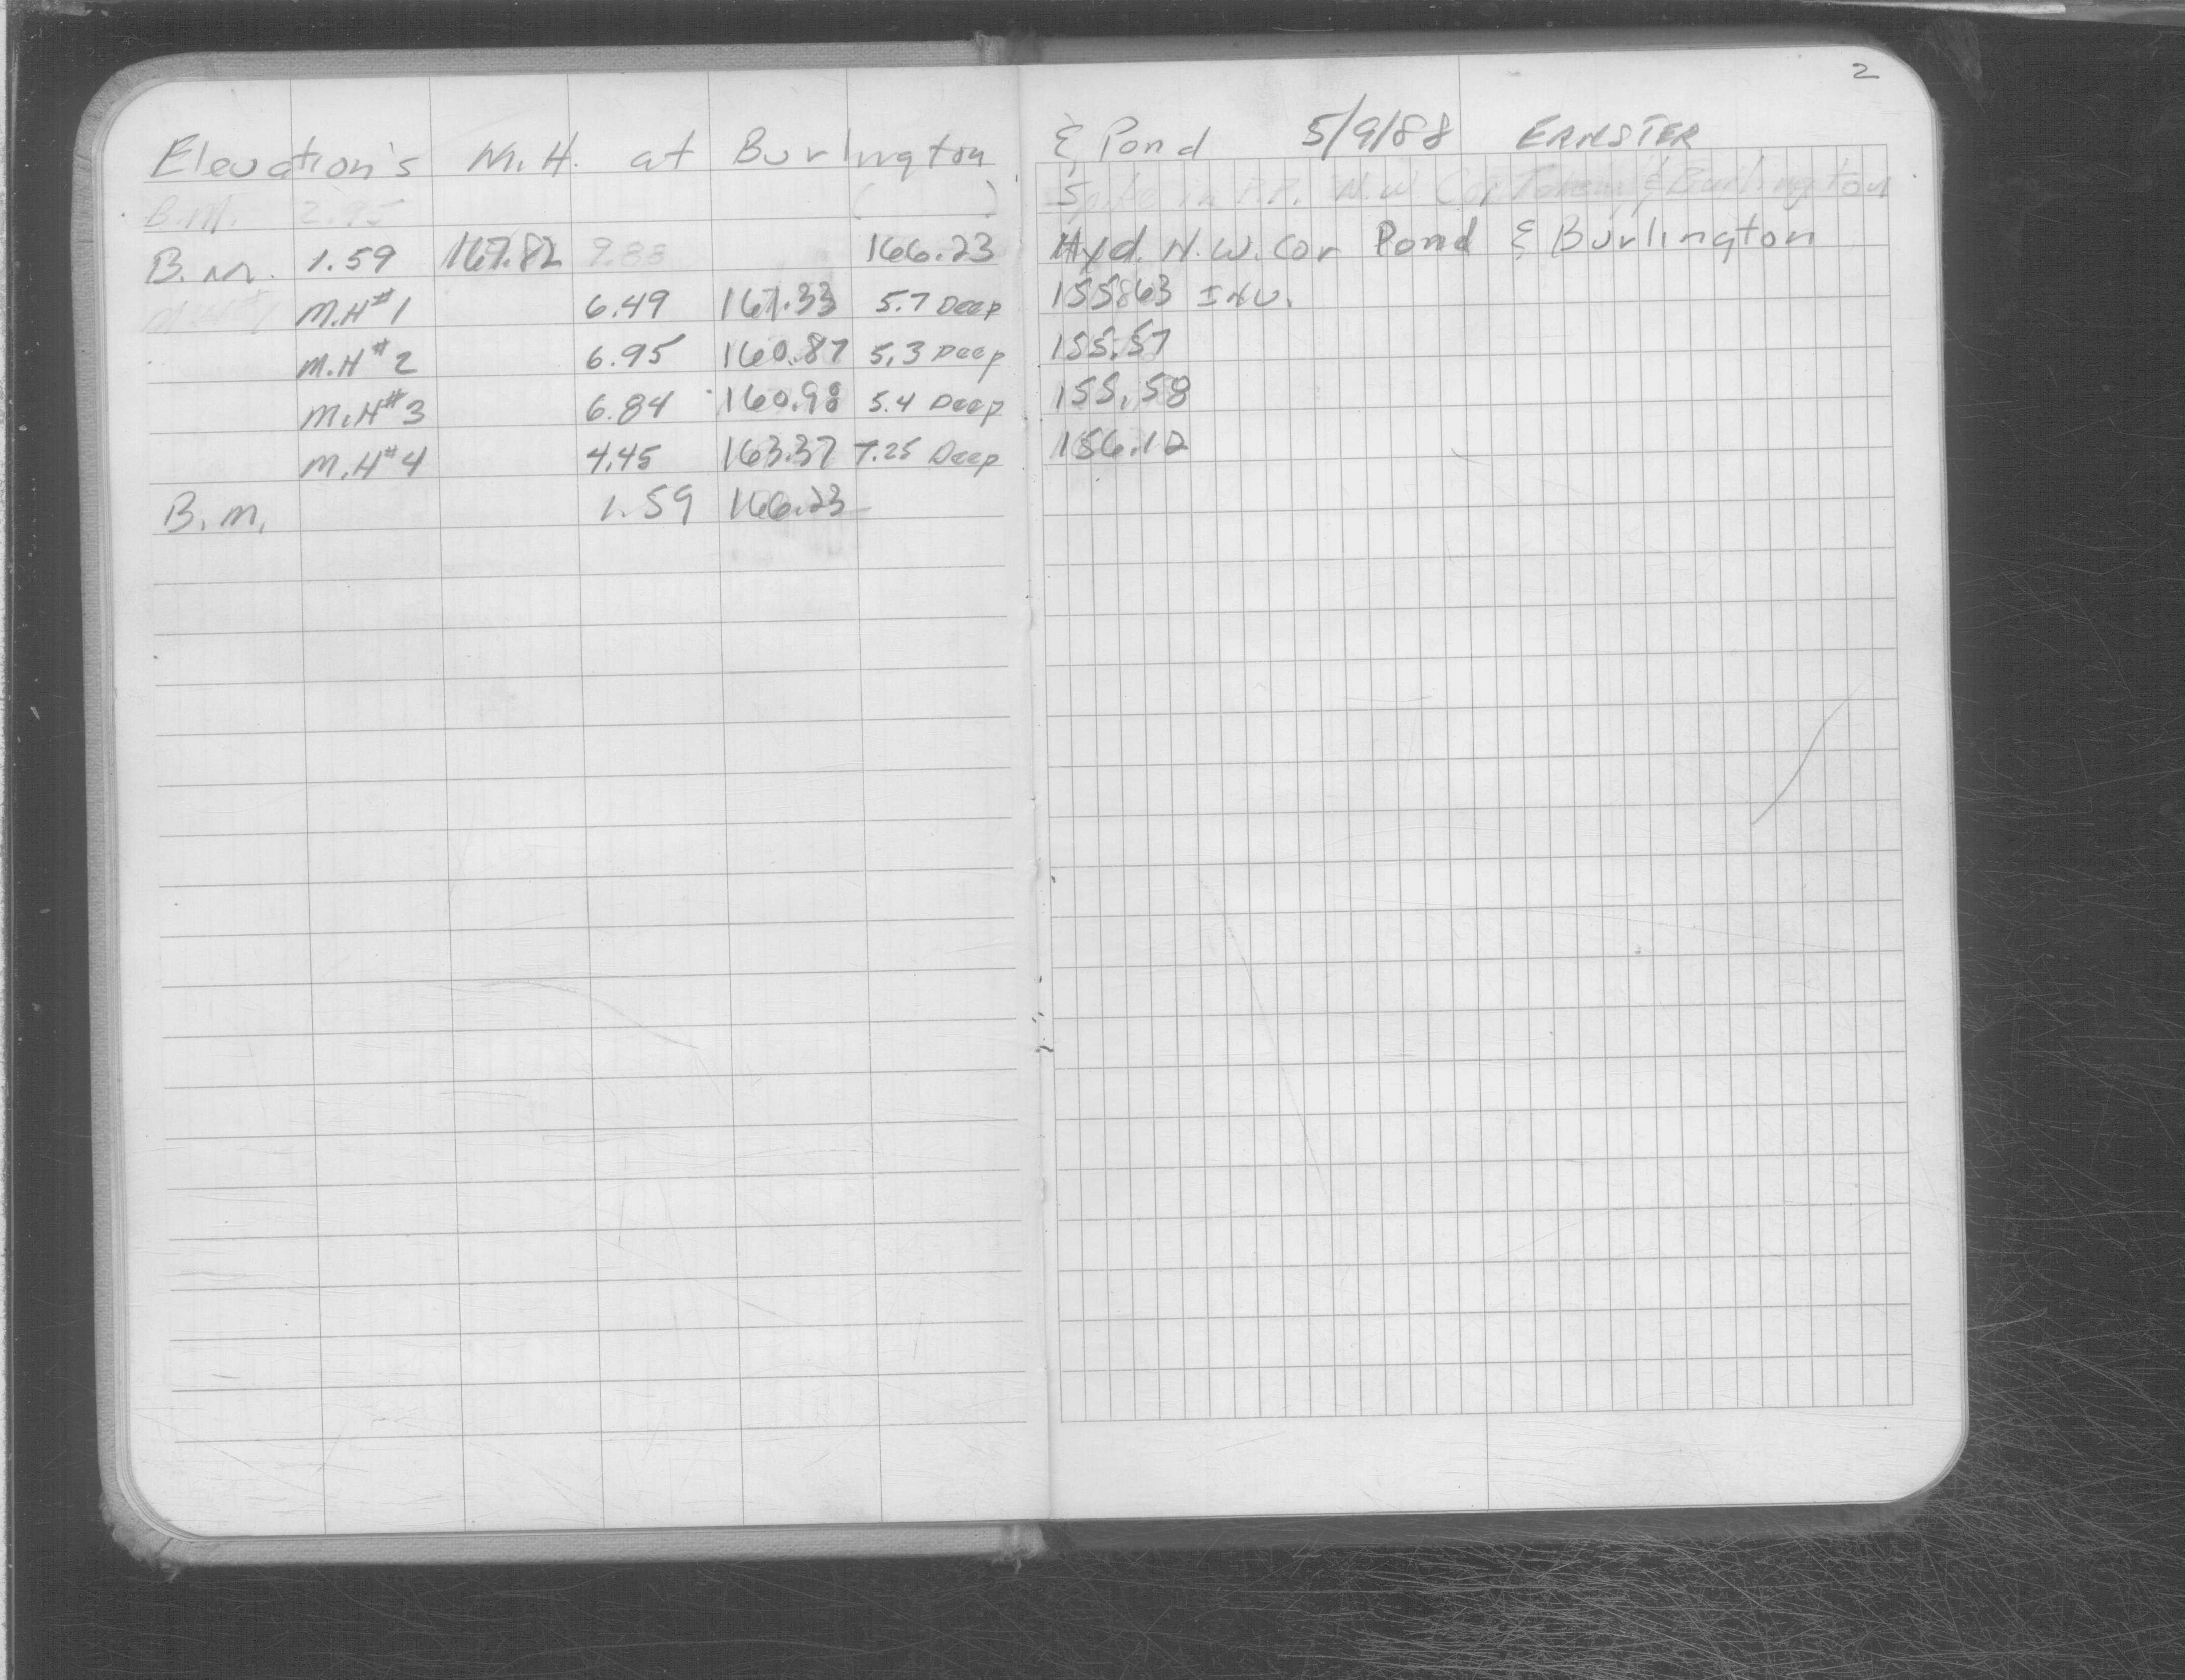 2
Elevation's M.H. at Burlington & Pond 5/9/88 ERNSTER
B.M. 2.95 ( ) Spike in P.P. N.W. Cor & Burlington
B.M. 1.59 167.82 9.88 166.23 Hyd. N.W. Cor Pond & Burlington
M.H#1 M.H#1 6.49 161.33 5.7 Deep 155.63 INV.
M.H#2 6.95 160.87 5.3 Deep 155.57
M.H#3 6.84 160.98 5.4 Deep 155.58
M.H#4 4.45 163.37 7.25 Deep 156.12
B.M. 1.59 166.23